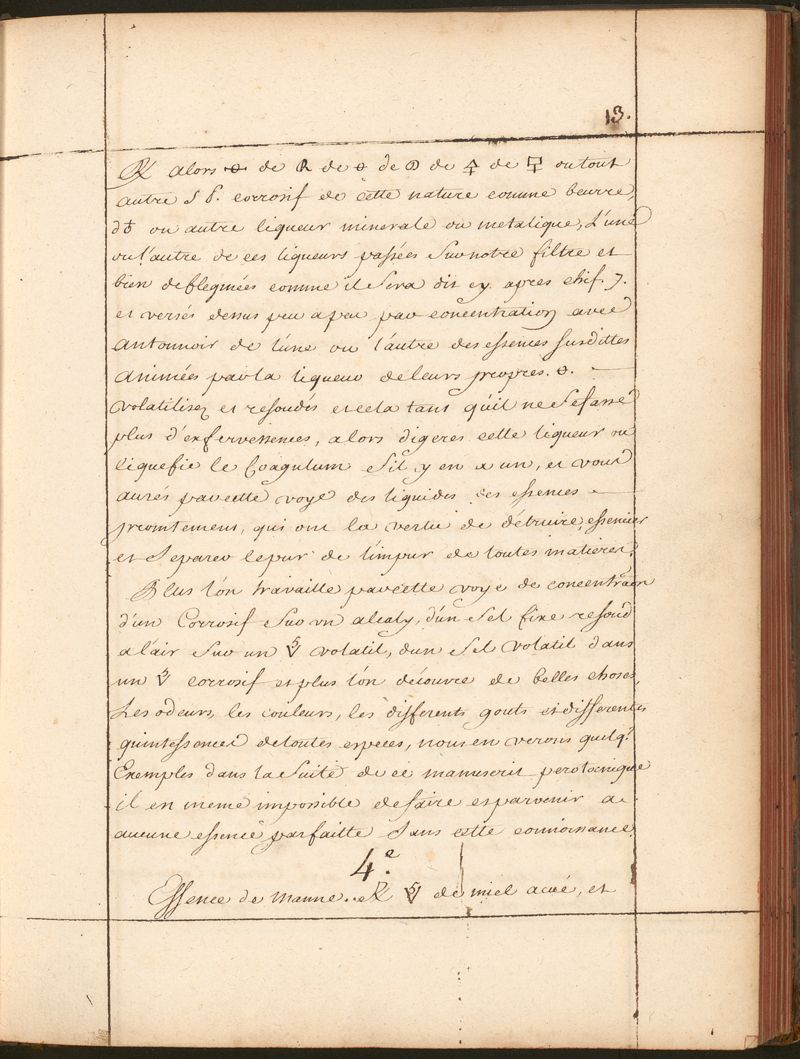 13.
℞ alors de de de de de ou tout
autre S P. corrosif de cette nature comme beurre
d♁ ou autre liqueur minerale ou metalique, L'une
ou l'autre de ces liqueurs passées Sur notre filtre et
bien deflegmées comme il Sera dit cy apres chif. 7.
et versés dessus peu a peu par concentration avec
antonnoir de l'une ou l'autre des essences susdittes
animées par la liqueur de leurs propres. ⊖.
volatilisez et resoudés et cela tant qu'il ne Se fasse
plus d'exfervessences, alors digeres cette liqueur ou
liquefie le Coagulum S'il y en a un, et vous
aurés par cette voye des liquides des essences
promtement, qui ont la vertu de détruire, essencier
et Separer le pur de l'impur de toutes matieres.
Plus l'on travaille par cette voye de concentraõn
d'un Corrosif Sur un alcaly, d'un Sel fixe resoud
a l'air Sur un volatil, d'un Sel volatil dans
un corrosif et plus l'on découvre de belles choses,
Les odeurs, les couleurs, les differents gouts et differentes
quintessences de toutes especes, nous en verons quelq.
Exemples dans la Suite de ce manuscrit perotecnique
il en meme impossible de faire et parvenir a
aucune essence parfaitte Sans cette connoissance
4.e
Essence de manne.. ℞ de miel acué, et